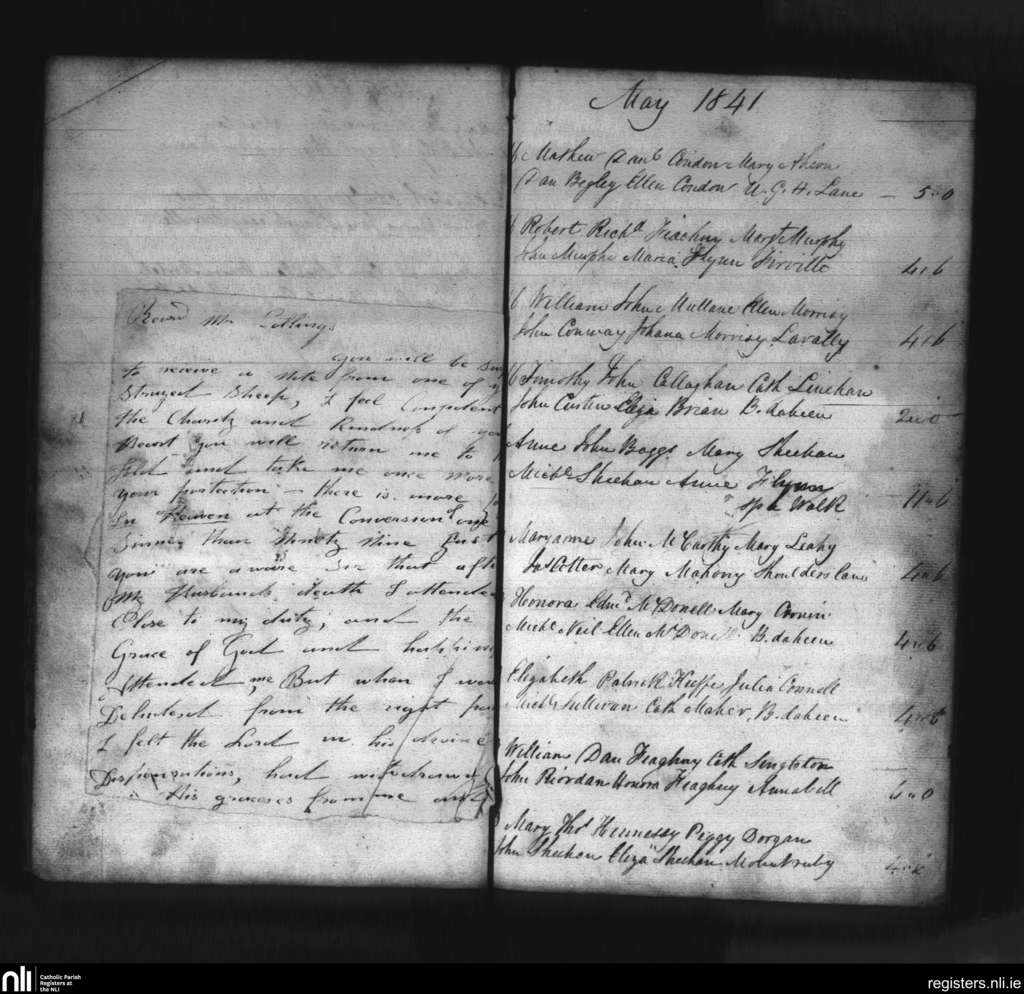 Revd Mr Collings
you will be
to receive a Note from one of
Strayed Sheep, I feel Competent
the Charity and Kindness of
Heart you will return me to
fold and take me once more
your protection – there is more
in Heaven at the Conversion of one
Sinner than Ninety Nine Just
you are aware Sir that after
my Husbands death I attended
Close to my duty, and the
Grace of God and
Attended me, But when I was
Deluded from the right
I felt the Lord in his devine
Dispensations, had withdrawn
His graces from me and
May 1841
Mathew Danl Condon Mary Aheon
Dan Begley Ellen Condon U. G. H. Lane – 5"0
Robert Richd Feaghny Margt Murphy
John Murphy Maria Flynn Firville 4"6
William John Mullane Ellen Morrisy
John Conway Johana Morrisy Lavally 4"6
Timothy John Callaghan Cath Linehan
John Curtin Eliza Brian B. daheen 2"0
Anne John Baggs Mary Sheehan
Michl Sheehan Anne Flynn
Walk "6
Maryanne John McCarthy Mary Leahy
Jas Cotter Mary Mahony Shoulders lane 4"6
Honora Edmd McDonell Mary Cronin
Michl Neil Ellen McDonell B. daheen 4"6
Elizabeth Patrick Kieffe Julia Connell
Michl Sullivan Cath Maher, B. daheen 4"6
William Dan Feaghny Cath Singleton
John Riordan Honora Feaghny Annabell 6"0
Mary Thos Hennessy Peggy Dorgan
John Sheehan Eliza Sheehan Mountruby
nli Catholic Parish
Registers at
the NLI
registers.nli.ie